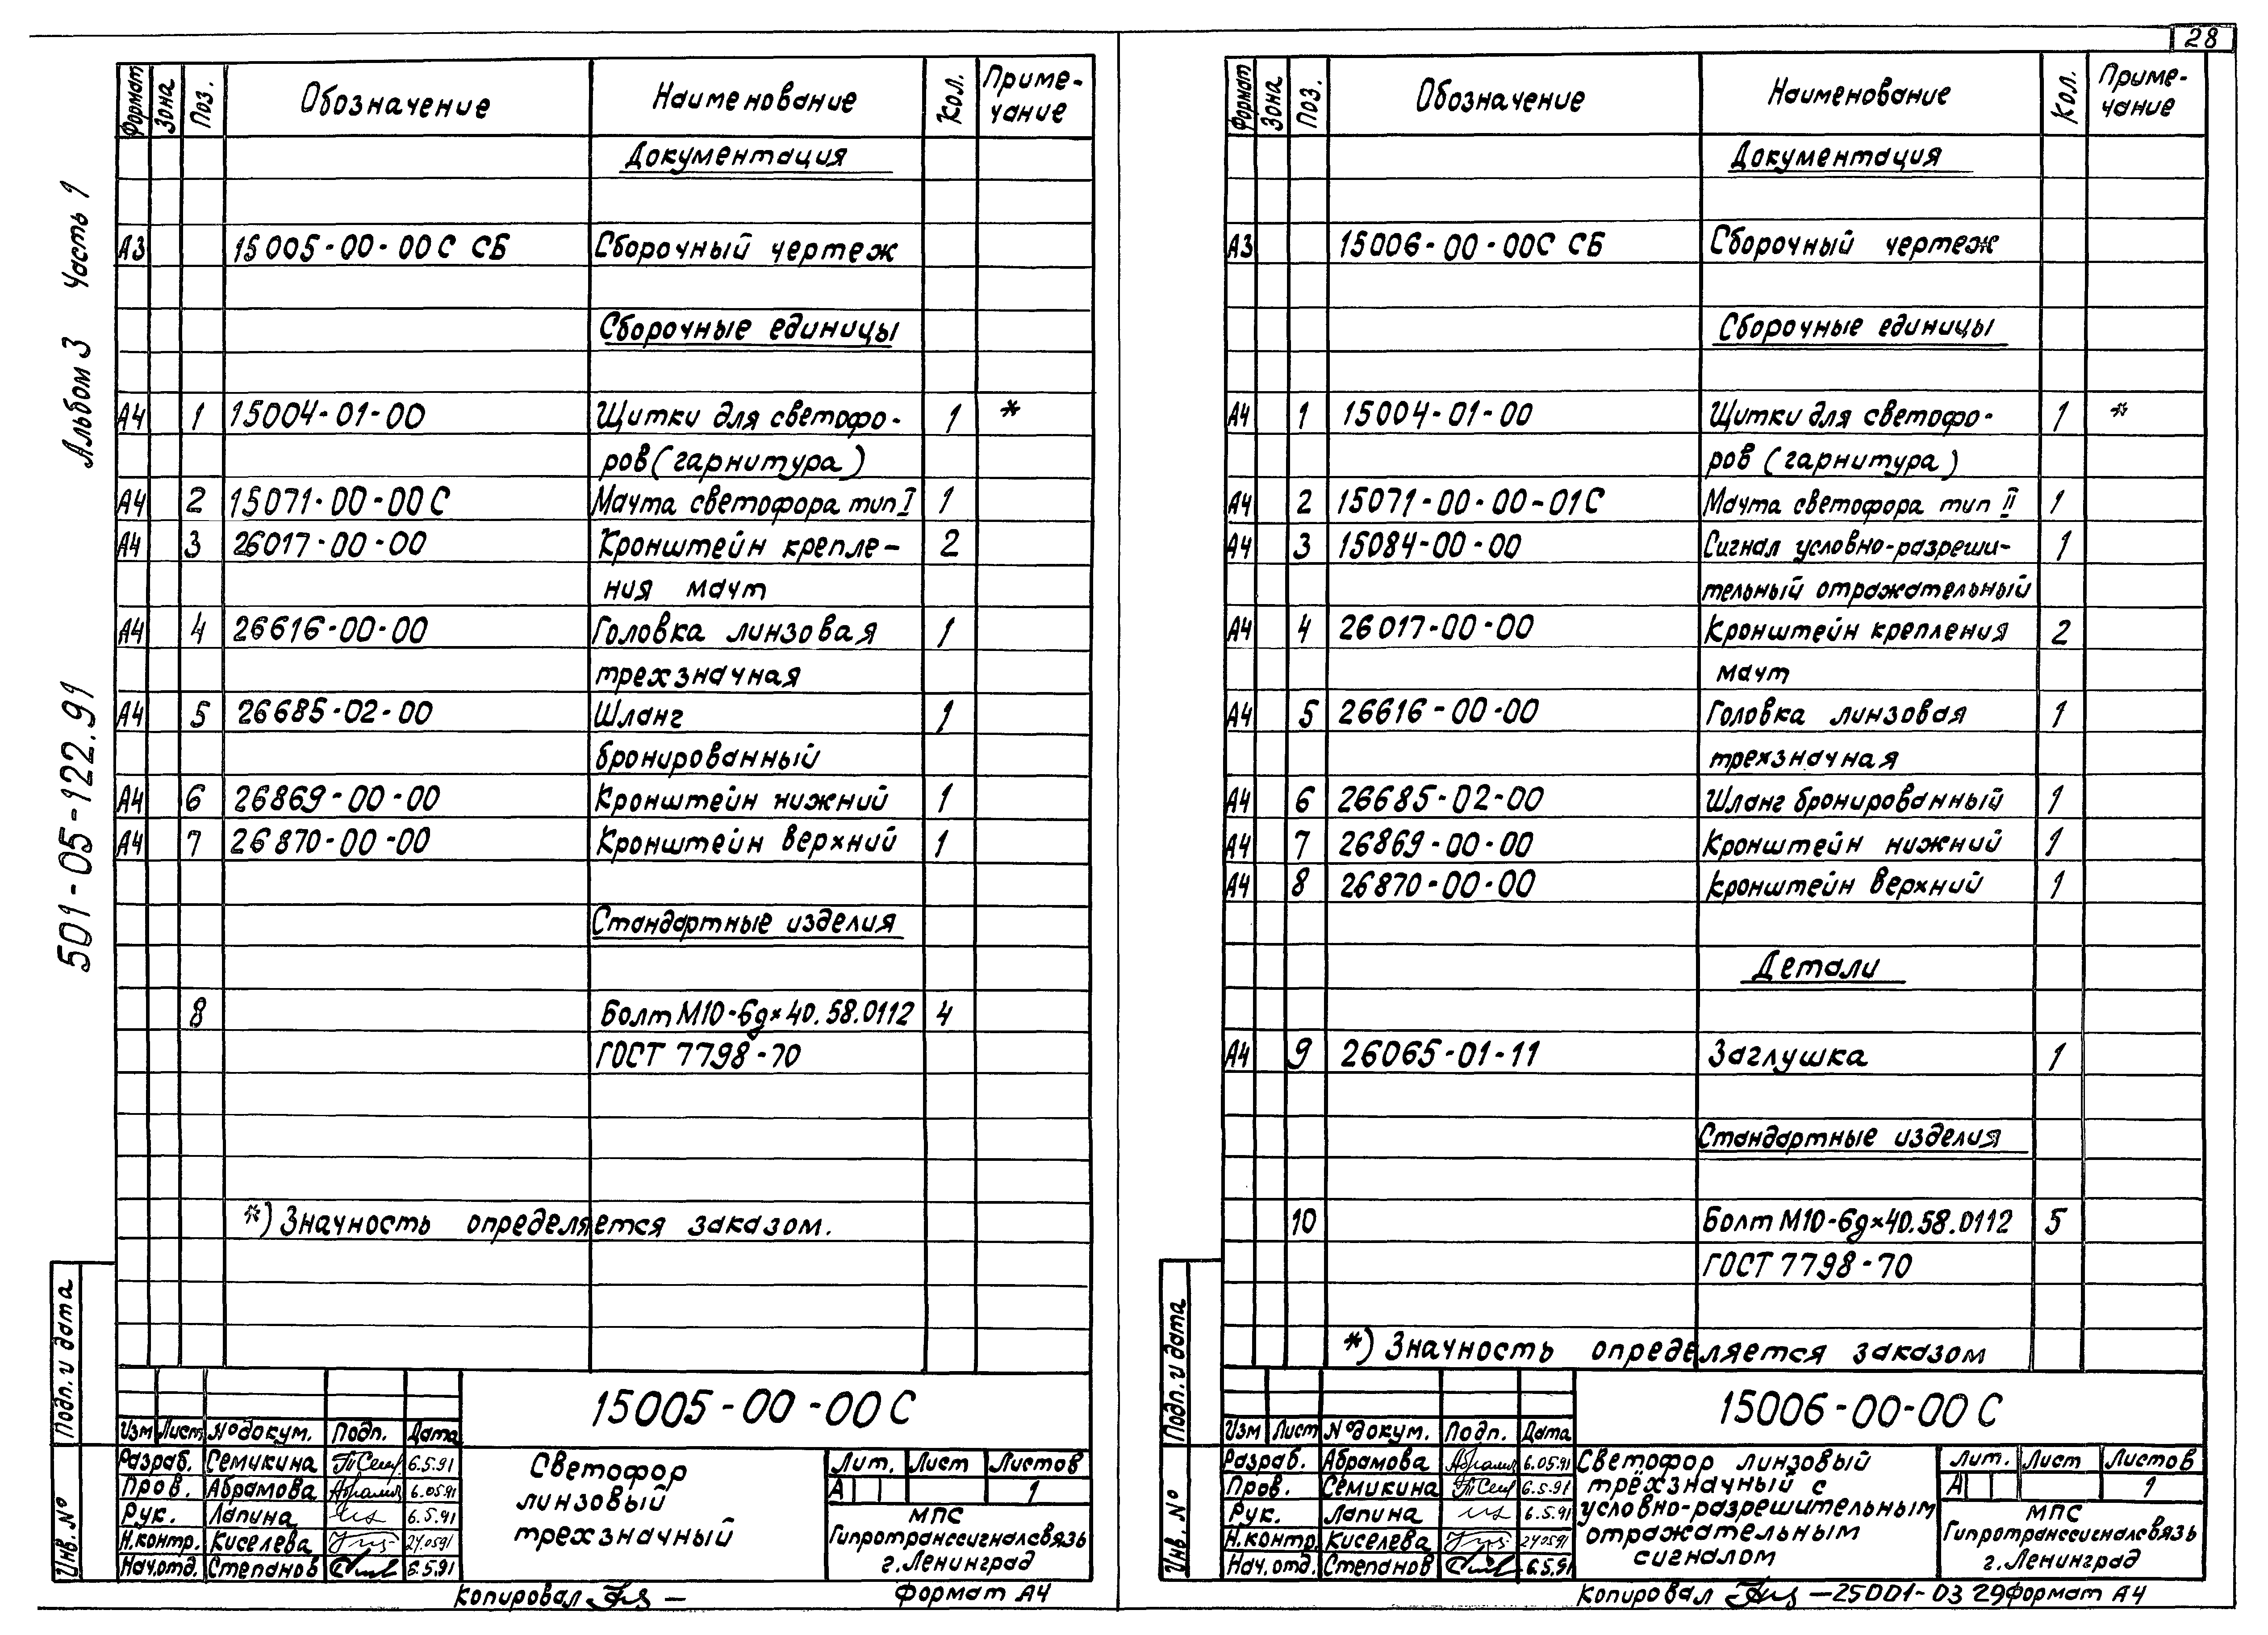 28
Альбом 3 Часть 1
501-05-122.91
Формат Зона Поз. Обозначение Наименование Кол. Приме-
чание
Документация
А3 15005-00-00С СБ Сборочный чертеж
Сборочные единицы
А4 1 15004-01-00 Щитки для светофо- 1 *
ров (гарнитура)
А4 2 15071-00-00С Мачта светофора тип I 1
А4 3 26017-00-00 Кронштейн крепле- 2
ния мачт
А4 4 26616-00-00 Головка линзовая 1
трехзначная
А4 5 26685-02-00 Шланг 1
бронированный
А4 6 26869-00-00 Кронштейн нижний 1
А4 7 26870-00-00 Кронштейн верхний 1
Стандартные изделия
8 Болт М10-6g×40.58.0112 4
ГОСТ 7798-70
*) Значность определяется заказом.
Подп. и дата
Инв. №
15005-00-00С
Изм Лист № докум. Подп. Дата
Разраб. Семикина 6.5.91
Пров. Абрамова 6.05.91
Рук. Лапина 6.5.91
Н.контр. Киселева 24.0591
Нач.отд. Степанов 6.5.91
Светофор
линзовый
трехзначный
Лит. Лист Листов
А 1
МПС
Гипротранссигналсвязь
г.Ленинград
Копировал
Формат А4
Формат Зона Поз. Обозначение Наименование Кол. Приме-
чание
Документация
А3 15006-00-00С СБ Сборочный чертеж
Сборочные единицы
А4 1 15004-01-00 Щитки для светофо- 1 *
ров (гарнитура)
А4 2 15071-00-00-01С Мачта светофора тип II 1
А4 3 15084-00-00 Сигнал условно-разреши- 1
тельный отражательный
А4 4 26017-00-00 Кронштейн крепления 2
мачт
А4 5 26616-00-00 Головка линзовая 1
трехзначная
А4 6 26685-02-00 Шланг бронированный 1
А4 7 26869-00-00 Кронштейн нижний 1
А4 8 26870-00-00 Кронштейн верхний 1
Детали
А4 9 26065-01-11 Заглушка 1
Стандартные изделия
10 Болт М10-6g×40.58.0112 5
ГОСТ 7798-70
*) Значность определяется заказом
Подп. и дата
Инв. №
15006-00-00С
Изм Лист № докум. Подп. Дата
Разраб. Абрамова 6.05.91
Пров. Семикина 6.5.91
Рук. Лапина 6.5.91
Н.контр. Киселева 240591
Нач.отд. Степанов 6.5.91
Светофор линзовый
трёхзначный с
условно-разрешительным
отражательным
сигналом
Лит. Лист Листов
А 1
МПС
Гипротранссигналсвязь
г.Ленинград
Копировал — 25001-03 29 Формат А4